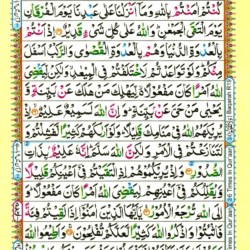 كُنْتُمْ اٰمَنْتُمْ بِاللّٰهِ وَمَاۤ اَنْزَلْنَا عَلٰى عَبْدِنَا يَوْمَ الْفُرْقَانِ
يَوْمَ الْتَقَى الْجَمْعٰنِ وَاللّٰهُ عَلٰى كُلِّ شَىْءٍ قَدِيْرٌ اِذْ اَنْتُمْ
بِالْعُدْوَةِ الدُّنْيَا وَهُمْ بِالْعُدْوَةِ الْقُصْوٰى وَالرَّكْبُ اَسْفَلَ
مِنْكُمْ وَلَوْ تَوَاعَدْتُّمْ لَاخْتَلَفْتُمْ فِى الْمِيْعٰدِ وَلٰكِنْ لِّيَقْضِىَ
اللّٰهُ اَمْرًا كَانَ مَفْعُوْلًا لِّيَهْلِكَ مَنْ هَلَكَ عَنْۢ بَيِّنَةٍ وَّ
يَحْيٰى مَنْ حَىَّ عَنْۢ بَيِّنَةٍ وَاِنَّ اللّٰهَ لَسَمِيْعٌ عَلِيْمٌ اِذْ
يُرِيْكَهُمُ اللّٰهُ فِىْ مَنَامِكَ قَلِيْلًا وَلَوْ اَرٰىكَهُمْ كَثِيْرًا لَّفَشِلْتُمْ وَ
لَتَنَازَعْتُمْ فِى الْاَمْرِ وَلٰكِنَّ اللّٰهَ سَلَّمَ اِنَّهٗ عَلِيْمٌۢ بِذَاتِ
الصُّدُوْرِ وَاِذْ يُرِيْكُمُوْهُمْ اِذِ الْتَقَيْتُمْ فِىْۤ اَعْيُنِكُمْ قَلِيْلًا
وَّيُقَلِّلُكُمْ فِىْۤ اَعْيُنِهِمْ لِيَقْضِىَ اللّٰهُ اَمْرًا كَانَ مَفْعُوْلًا وَ
اِلَى اللّٰهِ تُرْجَعُ الْاُمُوْرُ يٰۤاَيُّهَا الَّذِيْنَ اٰمَنُوْۤا اِذَا لَقِيْتُمْ فِئَةً
فَاثْبُتُوْا وَاذْكُرُوا اللّٰهَ كَثِيْرًا لَّعَلَّكُمْ تُفْلِحُوْنَ وَاَطِيْعُوا